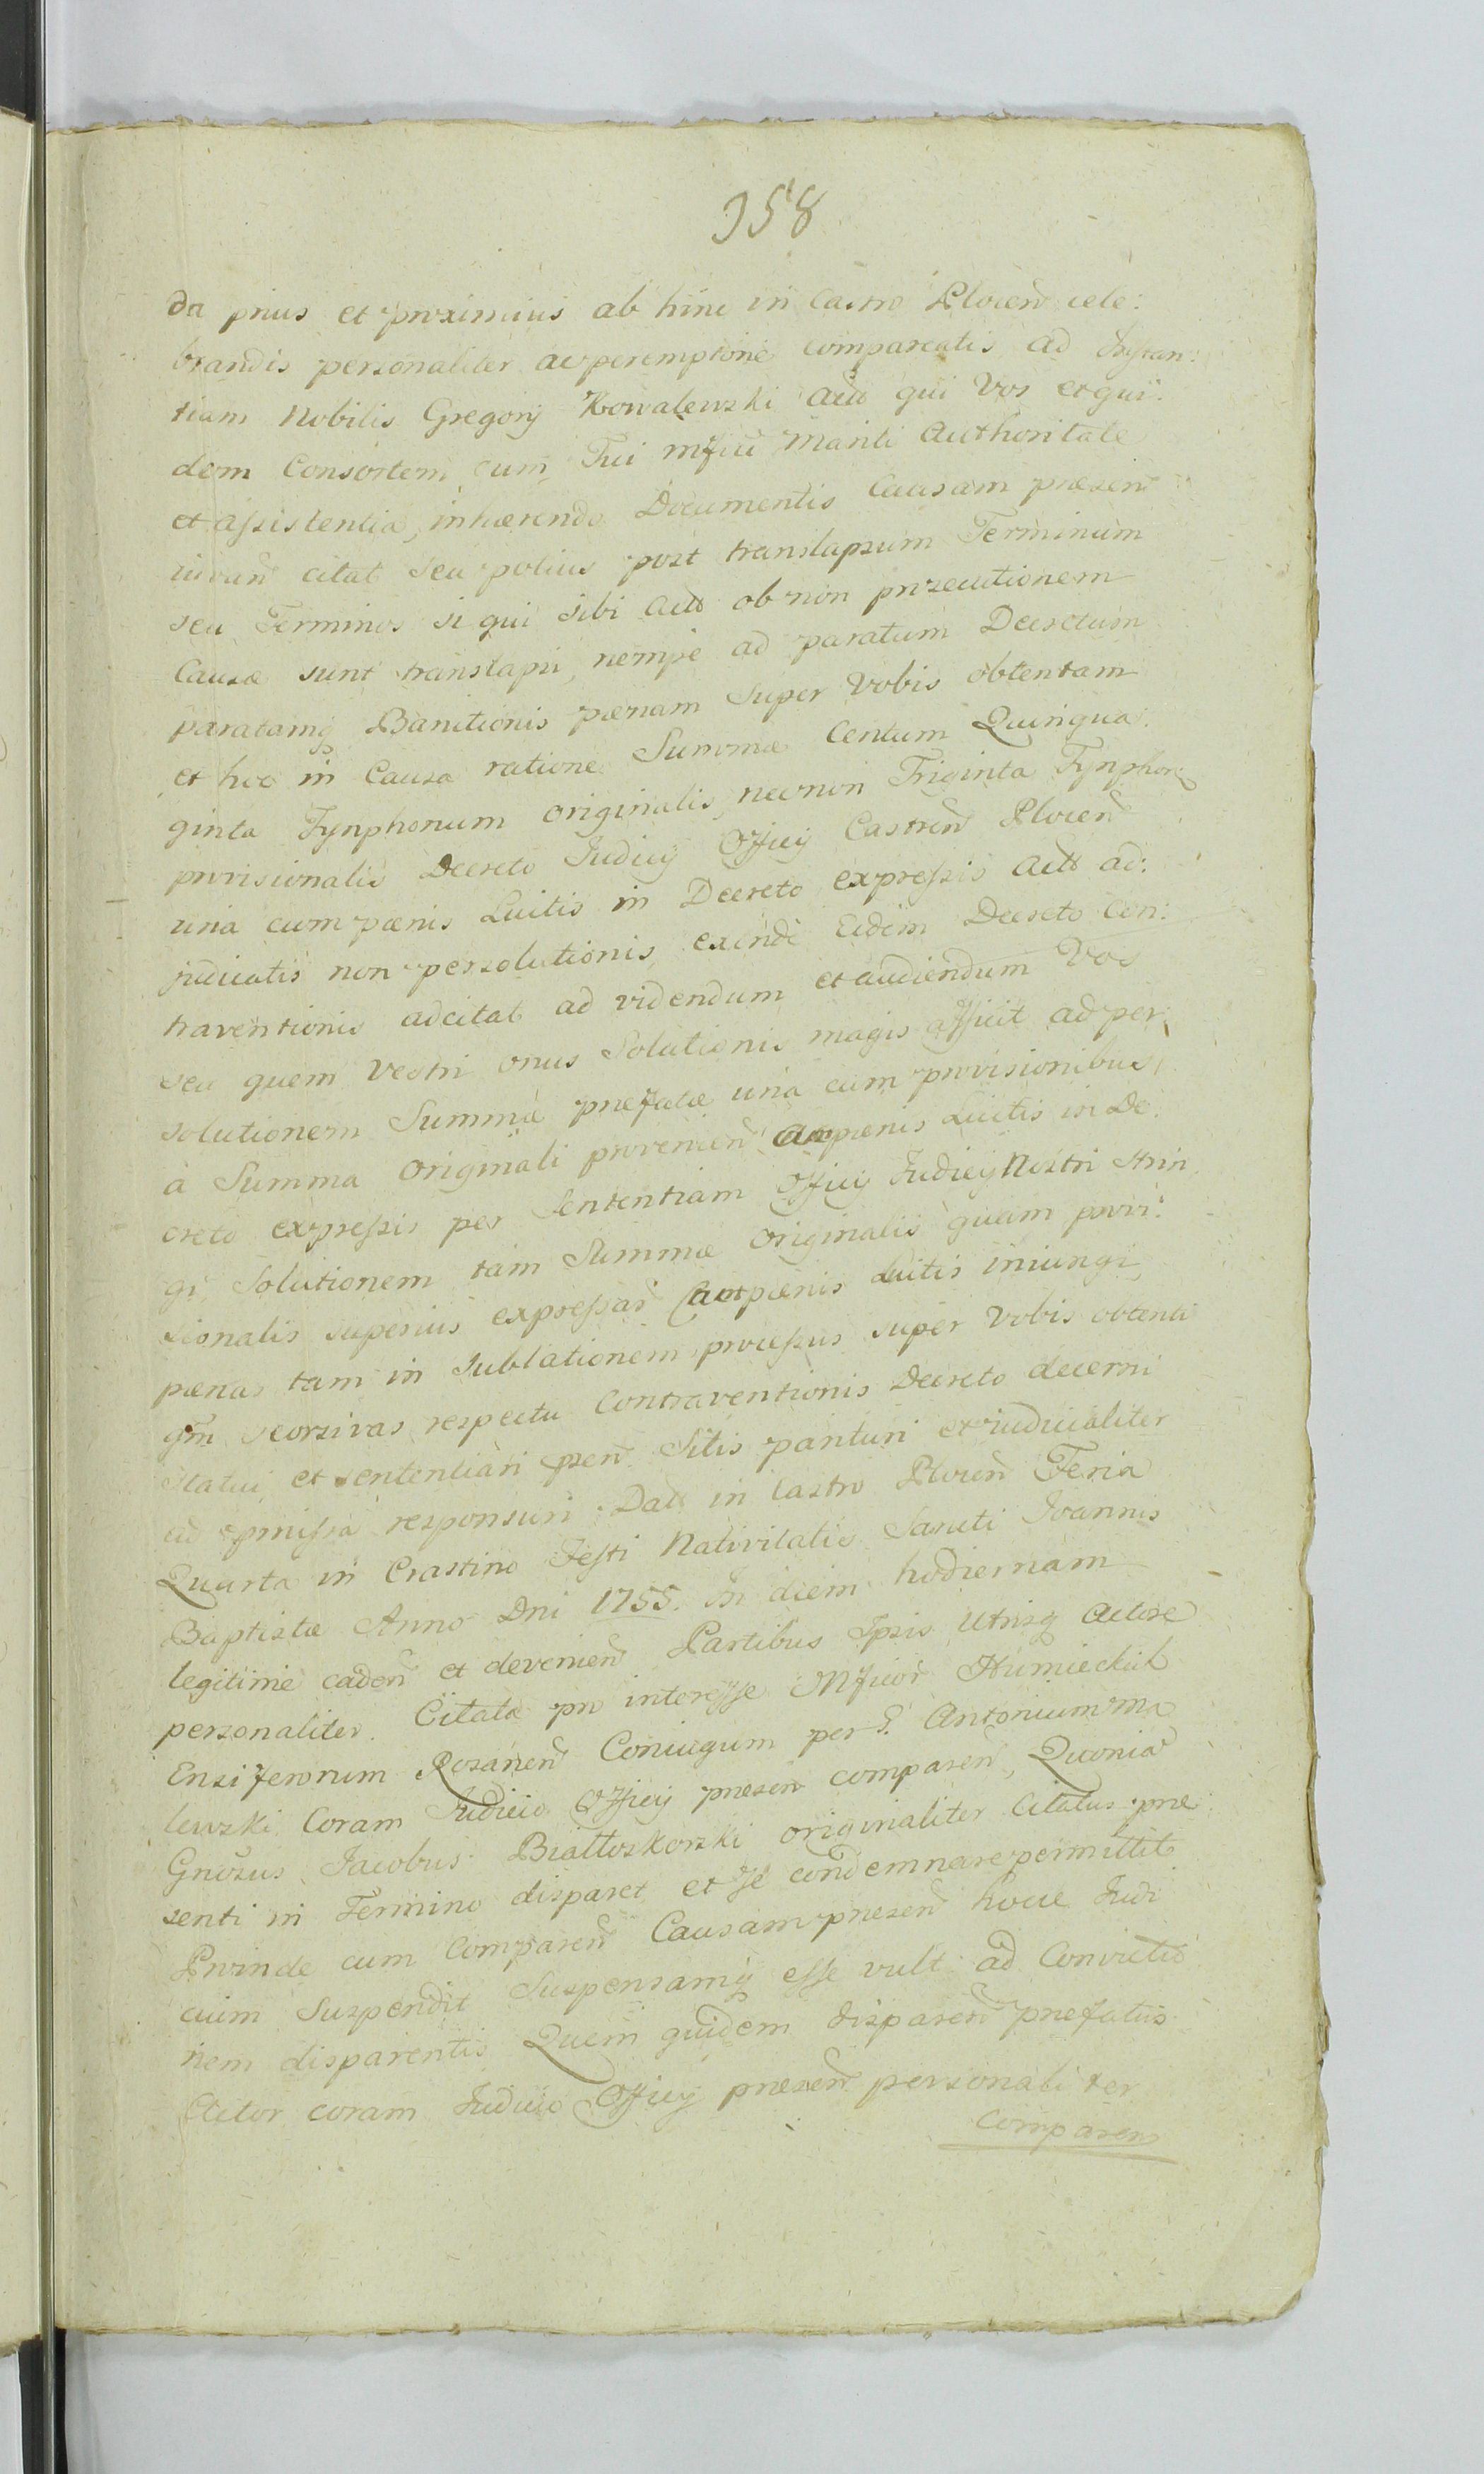 358
da prius et proximius ab hinc in Castro Plocen cele:
brandis personaliter ac peremptorie compareatis ad Instan:
tiam Nobilis Gregorij Kowalewski Actt qui Vos et qui:
dem Consortem cum Tui Mfici Mariti Authoritate
et assistentia, inhærendo Documentis Causam præsen
iuvan citat seu potius post translapsum Terminum
seu Terminos si qui sibi Actt ob non prosecutionem
Causæ sunt translapsi, nempe ad paratum Decretum
paratamq Banitionis pænam super Vobis obtentam
et hoc in Causa ratione Summæ Centum Quinqua:
ginta Tynphonum originalis, necnon Triginta Tynphon
provisionalis Decreto Iudicij Officij Castren Plocen
una cum pænis Luitis in Decreto expressis Actt ad:
judicatis non persolutionis, exinde Eidem Decreto Con:
traventionis adcitat ad videndum et audiendum Vos
seu quem Vestri onus Solutionis magis afficit ad per
solutionem Summæ præfatæ una cum provisionibus
a Summa Originali provenien ac pænis Luitis in De:
creto expressis per Sententiam Officij Iudicij Nostri strin
gi, Solutionem tam Summæ Originalis quam provi:
sionalis superius expressar cum pænis Luitis iniungi
pænas tam in Sublationem processus super Vobis obtenti
qm seorsivas respectu Contraventionis Decreto decerni
statui et sententiari psen Sitis parituri et iudicialiter
ad pmissa responsuri. Datt in Castro Plocen Feria
Quarta in Crastino Festi Nativitatis Sancti Ioannis
Baptistæ Anno Dni 1755. In diem hodiernam
legitime caden et devenien Partibus Ipsis Utrisq Actore
personaliter. Citata pro interesse Mficor Humieckich
Ensiferorum Rosanen Coniugum per G. Antonium Ma
lewski Coram Iudicio Officij præsen comparen, Quonia
Gnosus Iacobus Białłoskorski originaliter Citatus præ
senti in Termino disparet et se condemnare permittit
Proinde cum Comparen Causam præsen hocce Iudi
cium Suspendit Suspensamq esse vult ad Convictio
nem disparentis Quem quidem disparen præfatus
Actor coram Iudicio Officij præsen personaliter
Comparen